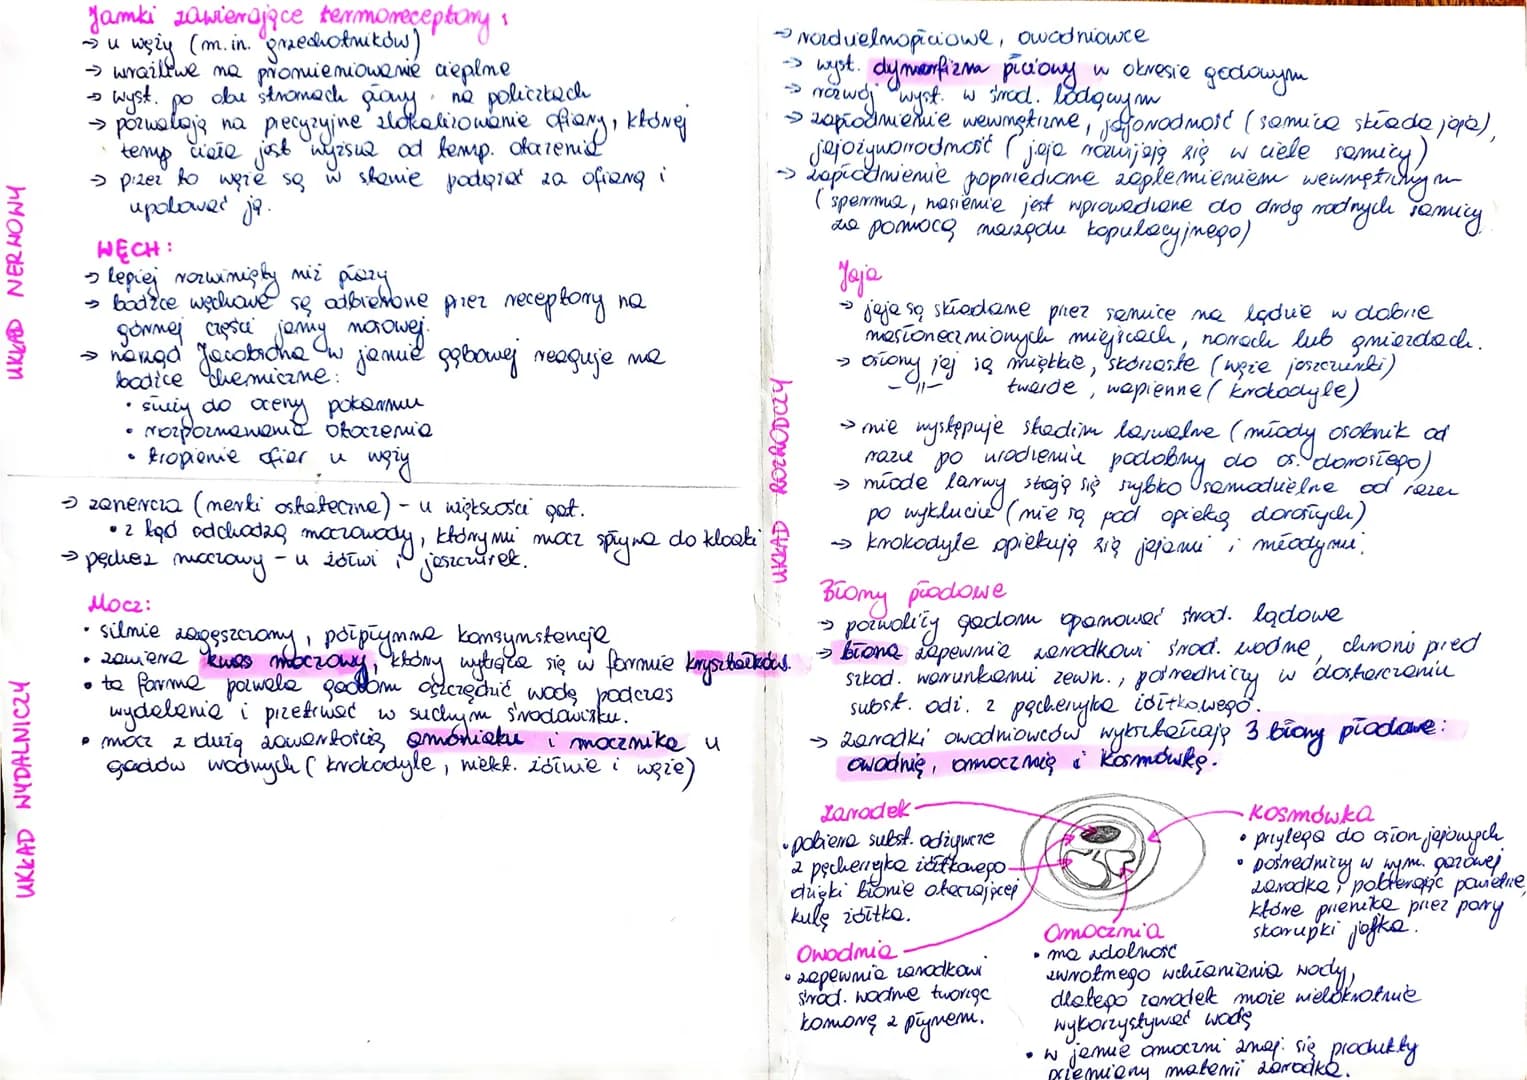 Jamki zawierające termoreceptory:
→ u węży (m.in. grzechotników)
→ wrażliwe na promieniowanie cieplne
→ wyst. po obu stronach głowy, na policzkach
→ pozwalają na precyzyjne zlokalizowanie ofiary, której
temp ciała jest wyższa od temp. otoczenia
→ przez to węże są w stanie podążać za ofiarą i
upolować ją.
UKŁAD NERWOWY
WĘCH:
→ lepiej rozwinięty niż płazy
→ bodźce węchowe są odbierane przez receptory na
górnej części jamy nosowej.
→ narząd Jacobsona w jamie gębowej reaguje na
bodźce chemiczne:
• służy do oceny pokarmu
• rozpoznawania otoczenia
• tropienie ofiar u węży
→ zanercza (nerki ostateczne) - u większości gat.
• z kąd odchodzą moczowody, którymi mocz spływa do kloaki
→ pęcherz moczowy - u żółwi i jaszczurek.
UKŁAD WYDALNICZY
Mocz:
• silnie zagęszczony, półpłynna konsynstencja
• zawiera kwas moczowy, który wytrąca się w formie kryształków.
• ta forma pozwala gadom oszczędzić wodę podczas
wydalania i przetrwać w suchym środowisku.
• mocz z dużą zawartością amoniaku i mocznika u
gadów wodnych (krokodyle, niekt. żółwie i węże)
→ rozdzielnopłciowe, owodniowce
→ wyst. dymorfizm płciowy w okresie godowym
→ rozwój wyst. w środ. lądowym
→ zapłodnienie wewnętrzne, jajorodność (samica składa jaja),
jajożyworodność (jaja rozwijają się w ciele samicy)
→ zapłodnienie poprzedzone zaplemieniem wewnętrznym
(sperma, nasienie jest wprowadzane do dróg rodnych samicy
za pomocą narządu kopulacyjnego)
UKŁAD ROZRODCZY
Jaja
→ jaja są składane przez samice na lądzie w dobrze
nasłonecznionych miejscach, norach lub gniazdach.
→ osłony jaj są miękkie, skórzaste (węże jaszczurki)
-"- twarde, wapienne (krokodyle)
→ nie występuje stadium larwalne (młody osobnik od
razu po urodzeniu podobny do os. dorosłego)
→ młode larwy stają się szybko samodzielne od razu
po wykluciu (nie są pod opieką dorosłych)
→ krokodyle opiekują się jajami i młodymi.
Błony płodowe
→ pozwoliły gadom opanować środ. lądowe
→ błona zapewnia zarodkowi środ. wodne, chroni przed
szkod. warunkami zewn., pośredniczy w dostarczaniu
subst. odż. z pęcherzyka żółtkowego.
→ zarodki owodniowców wykształcają 3 błony płodowe:
owodnię, omocznię i kosmówkę.
Zarodek
• pobiera subst. odżywcze
z pęcherzyka żółtkowego
dzięki błonie otaczającej
kulę żółtka.
Owodnia
• zapewnia zarodkowi
środ. wodne tworząc
komorę z płynem.
Kosmówka
• przylega do osłon jajowych
• pośredniczy w wym. gazowej
zarodka, pobierając powietrze,
które przenika przez pory
skorupki jajka.
Omocznia
• ma zdolność
zwrotnego wchłaniania wody,
dlatego zarodek może wielokrotnie
wykorzystywać wodę
• w jamie omoczni znaj. się produkty
przemiany materii zarodka.